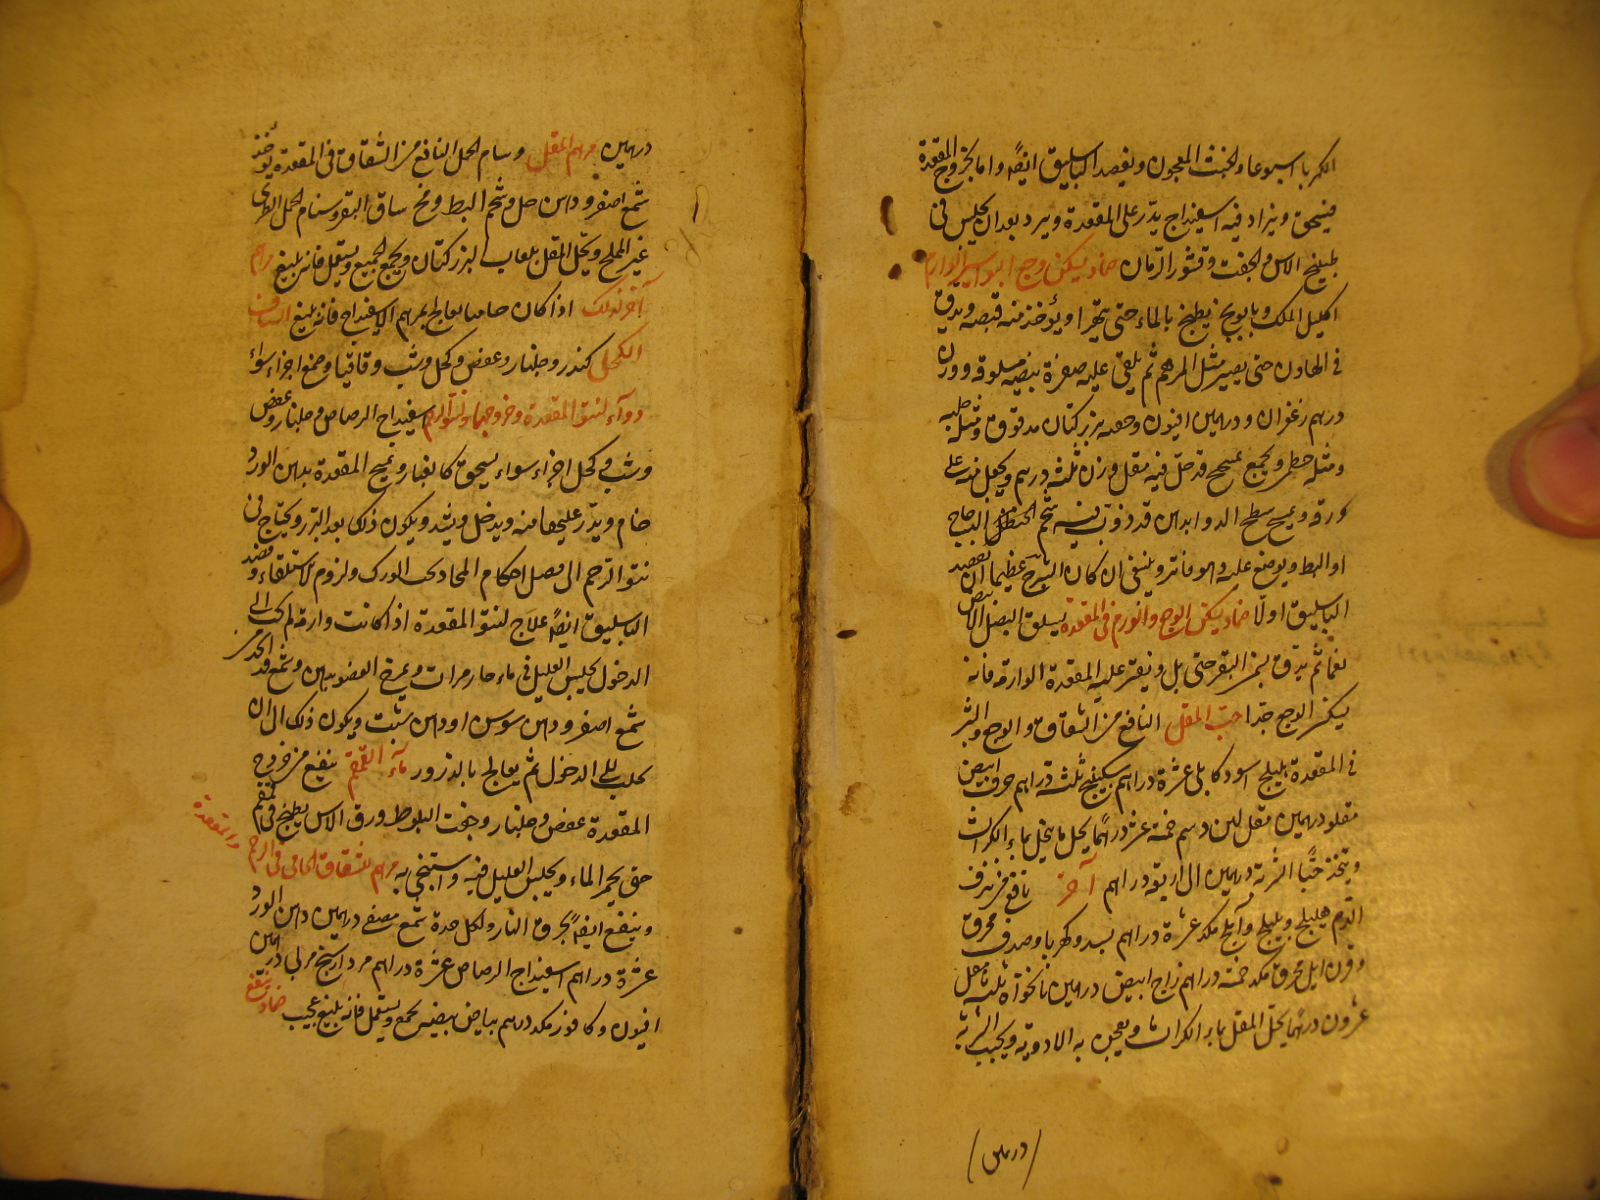 الكهربا اسبوعا ولخبث المعجون ويفصد الباسليق ايضا واما لخروج المقعدة
فيسحق ويزاد فيه اسفيداج يذر على المقعدة ويرد بعد ان يجلس فى
طبيخ الاس والجفت وقشور الرمان ضماد يسكن وجع البواسير الوارم
اكليل الملك وبابونج يطبخ بالماء حتى يتهرا ويؤخذ منه قبضه ويدق
فى الهاون حتى يصير مثل المرهم ثم يلقى عليه صفرة بيضه مسلوقه ووزن
درهم زعفران ودرهمين افيون ومعه بزر كتان مدقوق ومثله حلبه
ومثله خطمى ويجمع بميبختج قد حل فيه مقل وزن ثلثه درهم ويجعل منه على
ورقه ويمسح سطح الدوا بدهن قد ذوب فيه شحم الدجاج
او البط ويوضع عليه وهو فاتر وينبغى ان كان الشرج عظيما ان يفصد
الباسليق اولا ضماد يسكن الوجع والورم فى المقعدة يسلق البصل الابيض
نعما ثم يدق بسمن البقر حتى بل ويفتر عليه المقعدة الوارمه فانه
يسكن الوجع جدا حب المقل النافع من الشقاق والوجع والبثر
فى المقعدة هليلج اسود كابلى عشرة دراهم سكبينج ثلثة دراهم حرف ابيض
مقلو درهمين مقل لين دسم خمسة عشر درهما يحل ما ينحل بماء الكراث
ويتخذ حبا الشربة درهمين الى اربعة دراهم آخر نافع من نزف
الدم هليلج وبليلج وآملج مكد عشرة دراهم بسد وكهربا وصدف محرق
وقرن ايل محرق مكد خمسة دراهم زاج ابيض درهمين نانخواه ثلثه مقل
عشرون درهما يحل المقل بماء الكراث ويعجن به الادوية ويحبب الشربة
درهمين
درهمين مرهم المقل وسنام الجمل النافع من الشقاق فى المقعدة يؤخذ
شمع اصفر ودهن حل وشحم البط ومخ ساق البقر وسنام الجمل الطرى
غير المملح ويحل المقل بلعاب البزركتان ويجمع الجميع ويستعمل فانه بليغ مرهم
آخر لذلك اذا كان حاميا يعالج بمرهم الاسفيداج فانه بليغ السفوف
الكحلى كندر وجلنار وعفص وكحل وشب وقاقيا وصمغ اجزاء سواء
دواء لنتو المقعدة وخروجها ولنتو الرحم اسفيداج الرصاص وجلنار وعفص
وشب وكحل اجزاء سواء يسحق كالغبار ويمسح المقعدة بدهن الورد
خام ويذر عليها منه ويدخل ويشد ويكون ذلك بعد التبرز ويحتاج فى
نتو الرحم الى فصل احكام المحاذ تحت الورك ولزوم الاستلقاء وفصد
الباسليق ايضا علاج لنتو المقعدة اذا كانت وارمة لم تجب الى
الدخول يجلس العليل فى ماء حار مرات ويمرخ العضو بدهن وشمع قد اتخذ من
شمع اصفر ودهن سوسن او دهن شبت ويكون ذلك الى ان
تجلب الى الدخول ثم يعالج بالذرور ماء القمقم ينفع من خروج
المقعدة عفص وجلنار وجفت البلوط وورق الاس يطبخ فى قمقم
حتى يحمر الماء ويجلس العليل فيه واستنجى به مرهم للشقاق الحامى فى الرحم والمقعدة
وينفع ايضا لحرق النار ولكل حدة شمع مصفى درهمين دهن الورد
عشرة دراهم اسفيداج الرصاص عشرة دراهم مرداسنج مربى درهمين
افيون وكافور مكد درهم بياض بيضه يجمع ويستعمل فانه بليغ عجيب ضماد ينفع